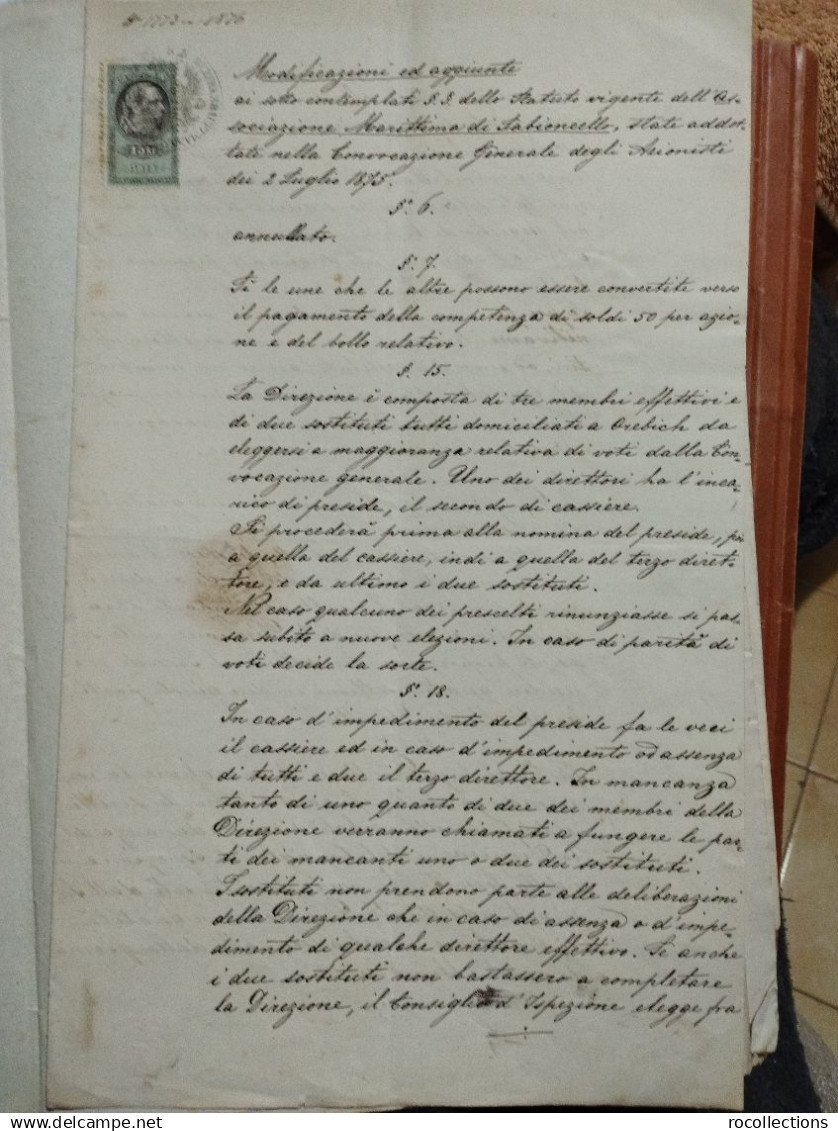 1773 1876
Modificazioni ed aggiunte
ai sotto contemplati §.§. dello Statuto vigente dell'As-
sociazione Marittima di Sabioncello, state addot-
tate nella Convocazione Generale degli Azionisti
dei 2 Luglio 1875.
§º 6.
annullato.
§º 7.
Sì le une che le altre possono essere convertite verso
il pagamento della competenza di soldi 50 per azio-
ne e del bollo relativo.
§. 15.
La Direzione è composta di tre membri effettivi e
di due sostituti tutti domiciliati a Orebich da
eleggersi a maggioranza relativa di voti dalla Con-
vocazione generale. Uno dei direttori ha l'inca-
rico di preside, il secondo di cassiere.
Si procederà prima alla nomina del preside,
a quella del cassiere, indi a quella del terzo diret-
tore, e da ultimo i due sostituti.
Nel caso qualcuno dei prescelti rinunziasse si pas-
sa subito a nuove elezioni. In caso di parità di
voti decide la sorte.
§º 18.
In caso d'impedimento del preside fa le veci
il cassiere ed in caso d'impedimento od assenza
di tutti e due il terzo direttore. In mancanza
tanto di uno quanto di due dei membri della
Direzione verranno chiamati a fungere le par-
ti dei mancanti uno o due dei sostituti.
I sostituti non prendono parte alle deliberazioni
della Direzione che in caso di assenza o d'impe-
dimento di qualche direttore effettivo. Se anche
i due sostituti non bastassero a completare
la Direzione, il Consiglio d'Ispezione elegge fra
rocollections